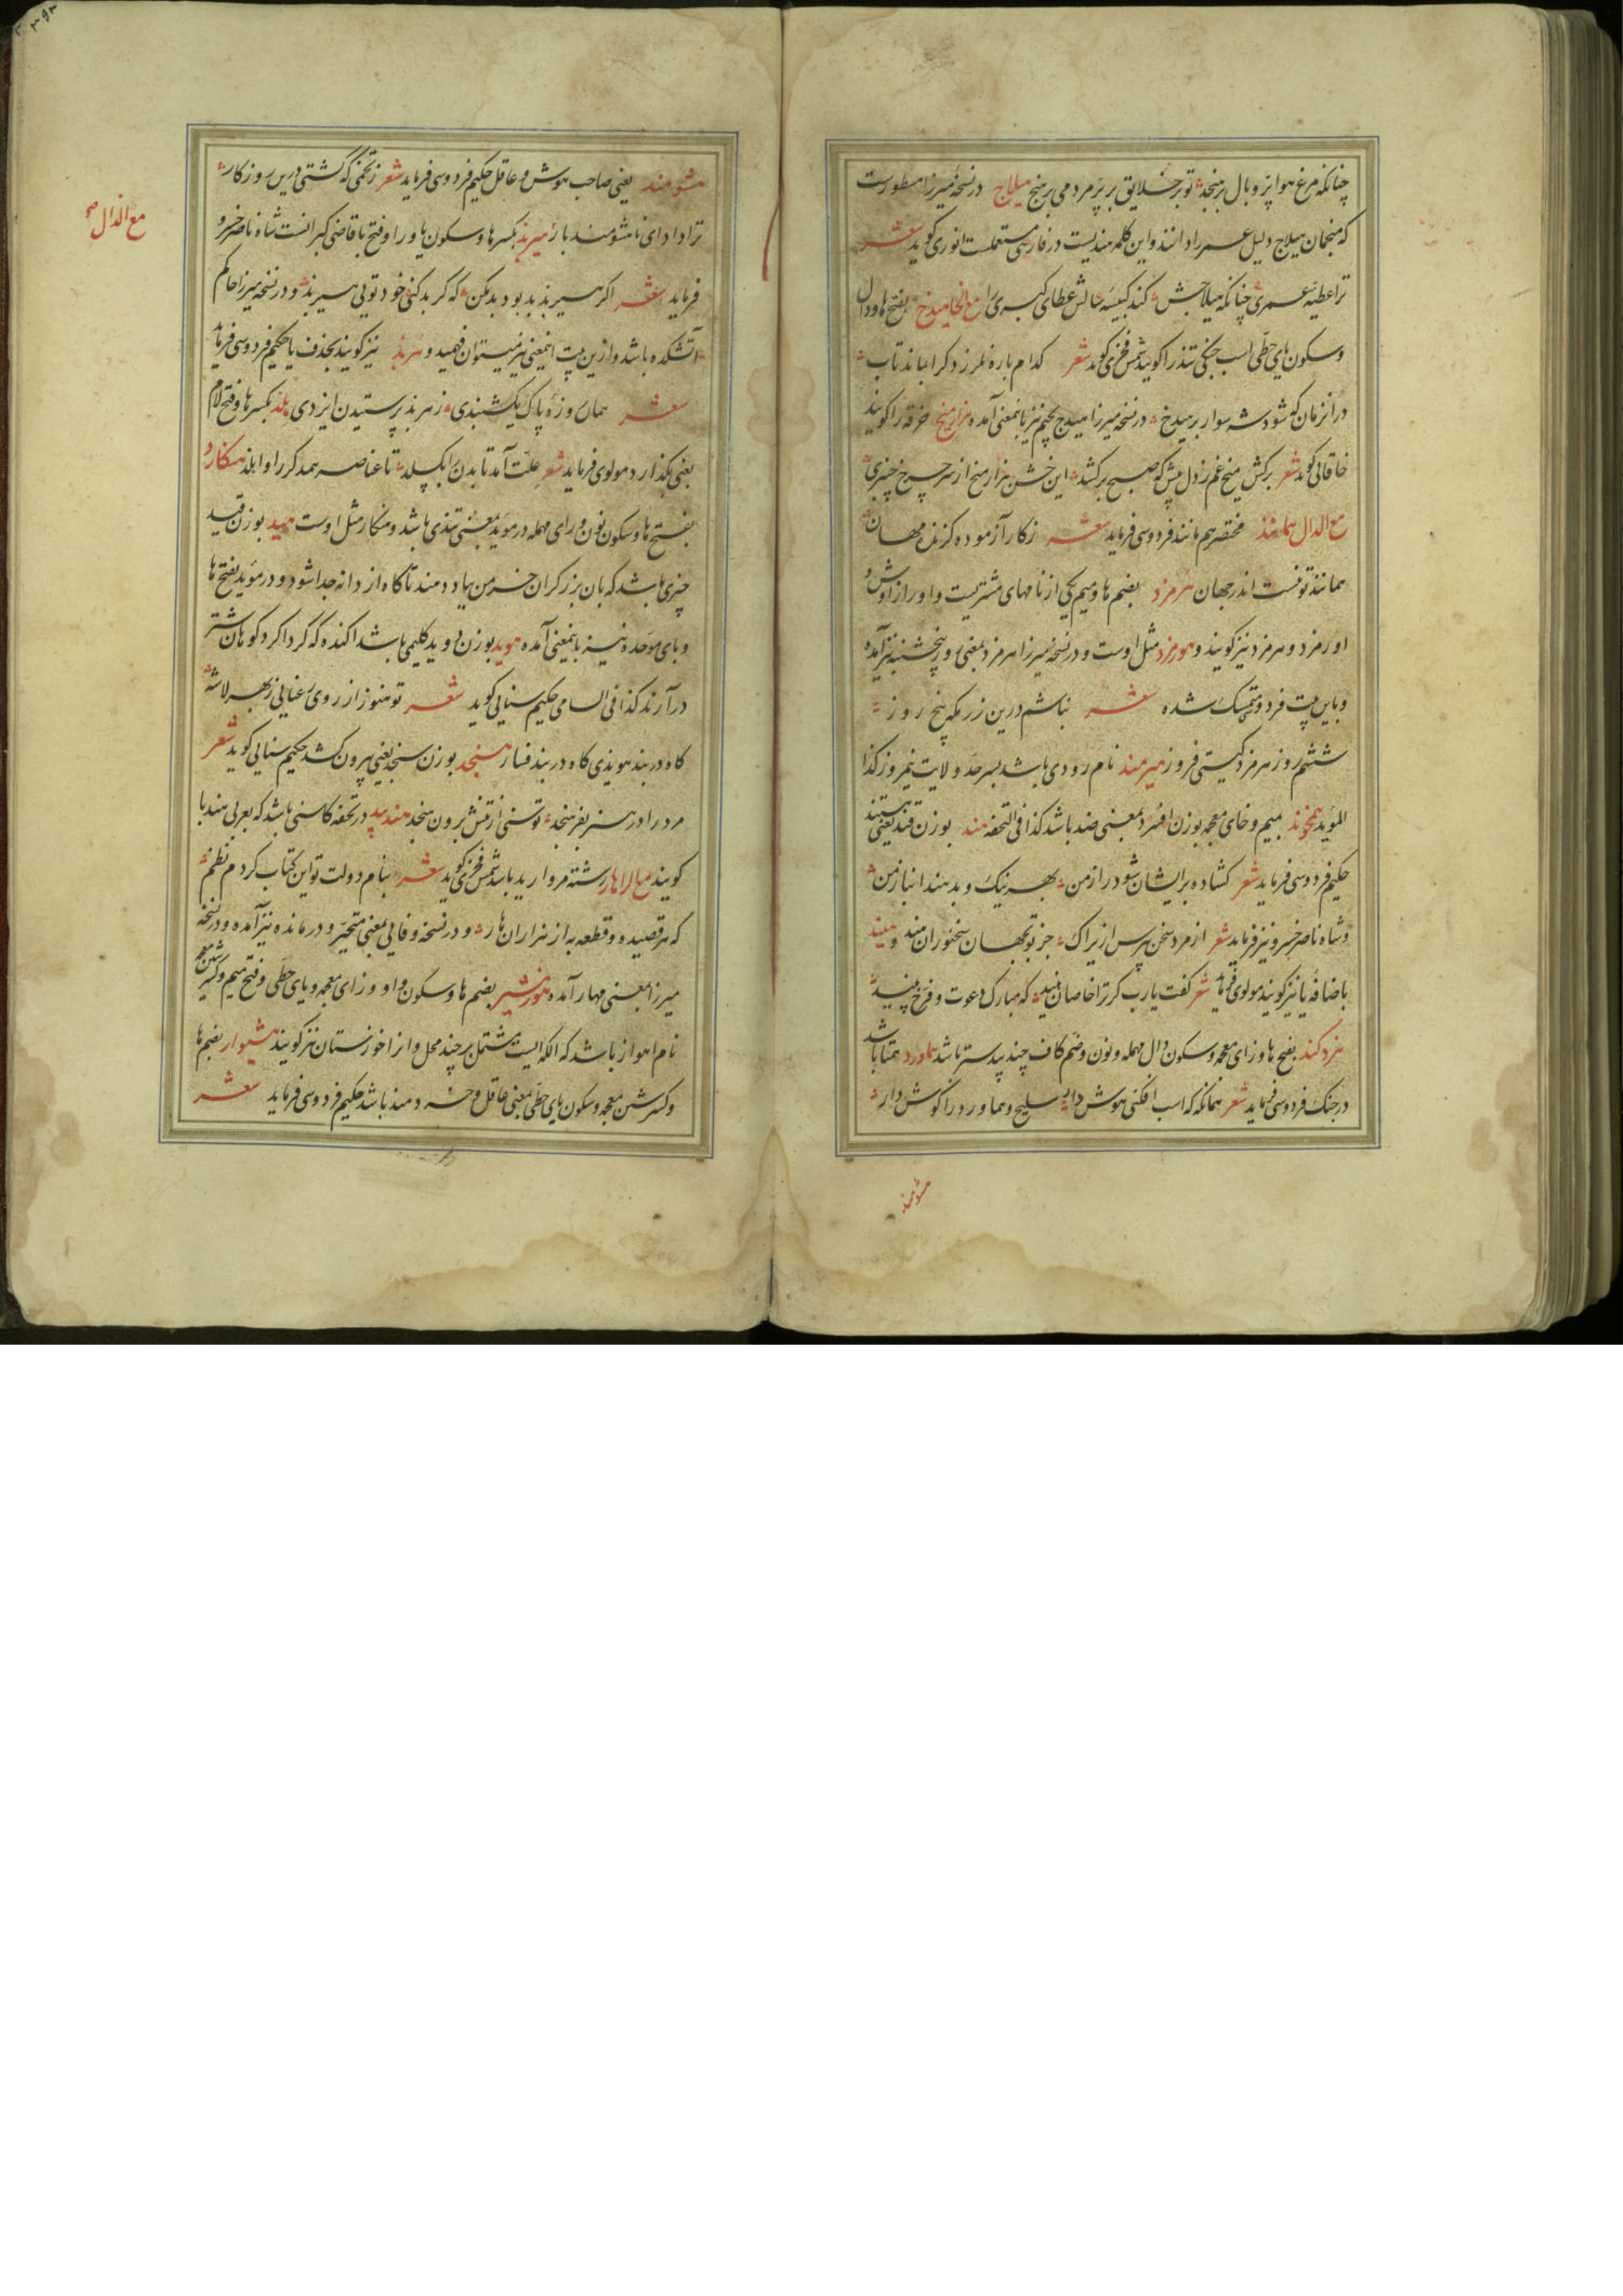 چنانکه مرغ هوا پر و بال برهنجد تو بر خلایق بر پر مردمی برهنج هیلاج در نسخه میرزا مسطورست
که منجمان هیلاج دلیل عمر را دانند و این کلمه هندیست در فارسی مستعملست انوری گوید شعر
ترا عطیه عمری چنانکه هیلاجش کند کبیسه سالش عطای کبری را مع الخا هیدخ بفتح ها و دال
و سکون یای حطی اسب جنگی تند را گویند شمس فخری گوید شعر کدام باره نلرزد کرا نباند تاب
در آن زمان که شود شه سوار بر هیدخ در نسخه میرزا هیدج بجیم نیز باینمعنی آمده هزارمیخ خرقه را گویند
خاقانی گوید شعر برکش میخ غم ز دل پیش که صبح برکشد این خشن هزار میخ از سر چرخ چنبری
مع الدال هماند مختصر هم مانند فردوسی فرماید شعر ز کار آزموده گزیده مهان
همانند تو نیست اندر جهان هرمزد بضم ها و میم یکی از نامهای مشتریست و او را زاوش و
اورمزد و هرمزد نیز گویند و هورمزد مثل اوست و در نسخه میرزا هرمزد بمعنی روز پنجشنبه نیز آمده
و باین بیت فردوسی متمسک شده شعر نباشم درین زر مکر پنج روز
ششم روز هرمزد گیتی فروز هیرمند نام رودی باشد بسرحد ولایت نیمروز کذا
المؤید همخوند بمیم و خای معجمه بوزن افسرد بمعنی ضد باشد کذا فی التحفه هند بوزن قند یعنی هستند
حکیم فردوسی فرماید شعر گشاده بر ایشان شود راز من بهر نیک و بد هند انباز من
و شاه ناصر خسرو نیز فرماید شعر از مرد سخن پرس ازیراک جز تو بجهان سخنوران هند و هیند
باضافه یا نیز گویند مولوی فرماید شعر گفت یارب گر ترا خاصان هیند که مبارک دعوت و فرخ پیند
هزدکند بفتح ها و زای معجمه و سکون دال مهمله و نون و ضم کاف چند بیدستر باشد هماورد همتا باشد
در جنگ فردوسی فرماید شعر همانگه که اسب افکنی هوش دار سلیح و هماورد را گوش دار
هشومند
هشومند یعنی صاحب هوش و عاقل حکیم فردوسی فرماید شعر ز تخمی که گشتی درین روزگار
ترا داد ای ناهشومند بار هیربد بکسر ها و سکون یا و را و فتح با قاضی گبرانست شاه ناصر خسرو
فرماید شعر اگر هیربد بد بود بد مکن که گر بد کنی خود تویی هیربد و در نسخه میرزا حاکم
آتشکده باشد و ازین بیت اینمعنی نیز میتوان فهمید و هربد نیز گویند بحذف یا حکیم فردوسی فرماید
شعر همان روزه پاک یکشنبدی ز هربد پرستیدن ایزدی هلد بکسر ها و فتح لام
یعنی بگذارد مولوی فرماید شعر علت آمد تا بدن را بگسلد تا عناصر همدگر را وا هلد هنگارد
بفتح ها و سکون نون و رای مهمله در مؤید بمعنی تندی باشد و هنگار مثل اوست هید بوزن قید
چیزی باشد که بان برزگران خرمن بباد دهند تا کاه از دانه جدا شود و در مؤید بفتح ها
و بای موحده نیز باینمعنی آمده هوید بوزن دوید گلیمی باشد اکنده که گرداگرد کوهان شتر
درآرند کذا فی السامی حکیم سنایی گوید شعر تو هنوز از روی رعنایی ز بهر لاشه
گاه در بند هویدی گاه در بند فسار هنجد بوزن سنجد یعنی بیرون کشد حکیم سنایی گوید شعر
مرد را در هنر بفرهنجد توسنی از تنش برون هنجد هندبید در تحفه کاسنی باشد که بعربی هندبا
گویند مع الرا هار رشته مروارید باشد شمس فخری گوید شعر بنام دولت تو این کتاب کردم نظم
که هر قصیده و قطعه به از هزاران هار و در نسخه وفایی بمعنی متحیر و درمانده نیز آمده و در نسخه
میرزا بمعنی مهار آمده هوزمشیر بضم ها و سکون واو و زای معجمه و یای حطی و فتح میم و کسر شین معجمه
نام اهواز باشد که الکه ایست مشتمل بر چند محل و انرا خوزستان نیز گویند هشیوار بضم ها
و کسر شین معجمه و سکون یای حطی بمعنی عاقل و خردمند باشد حکیم فردوسی فرماید شعر
مع الذال